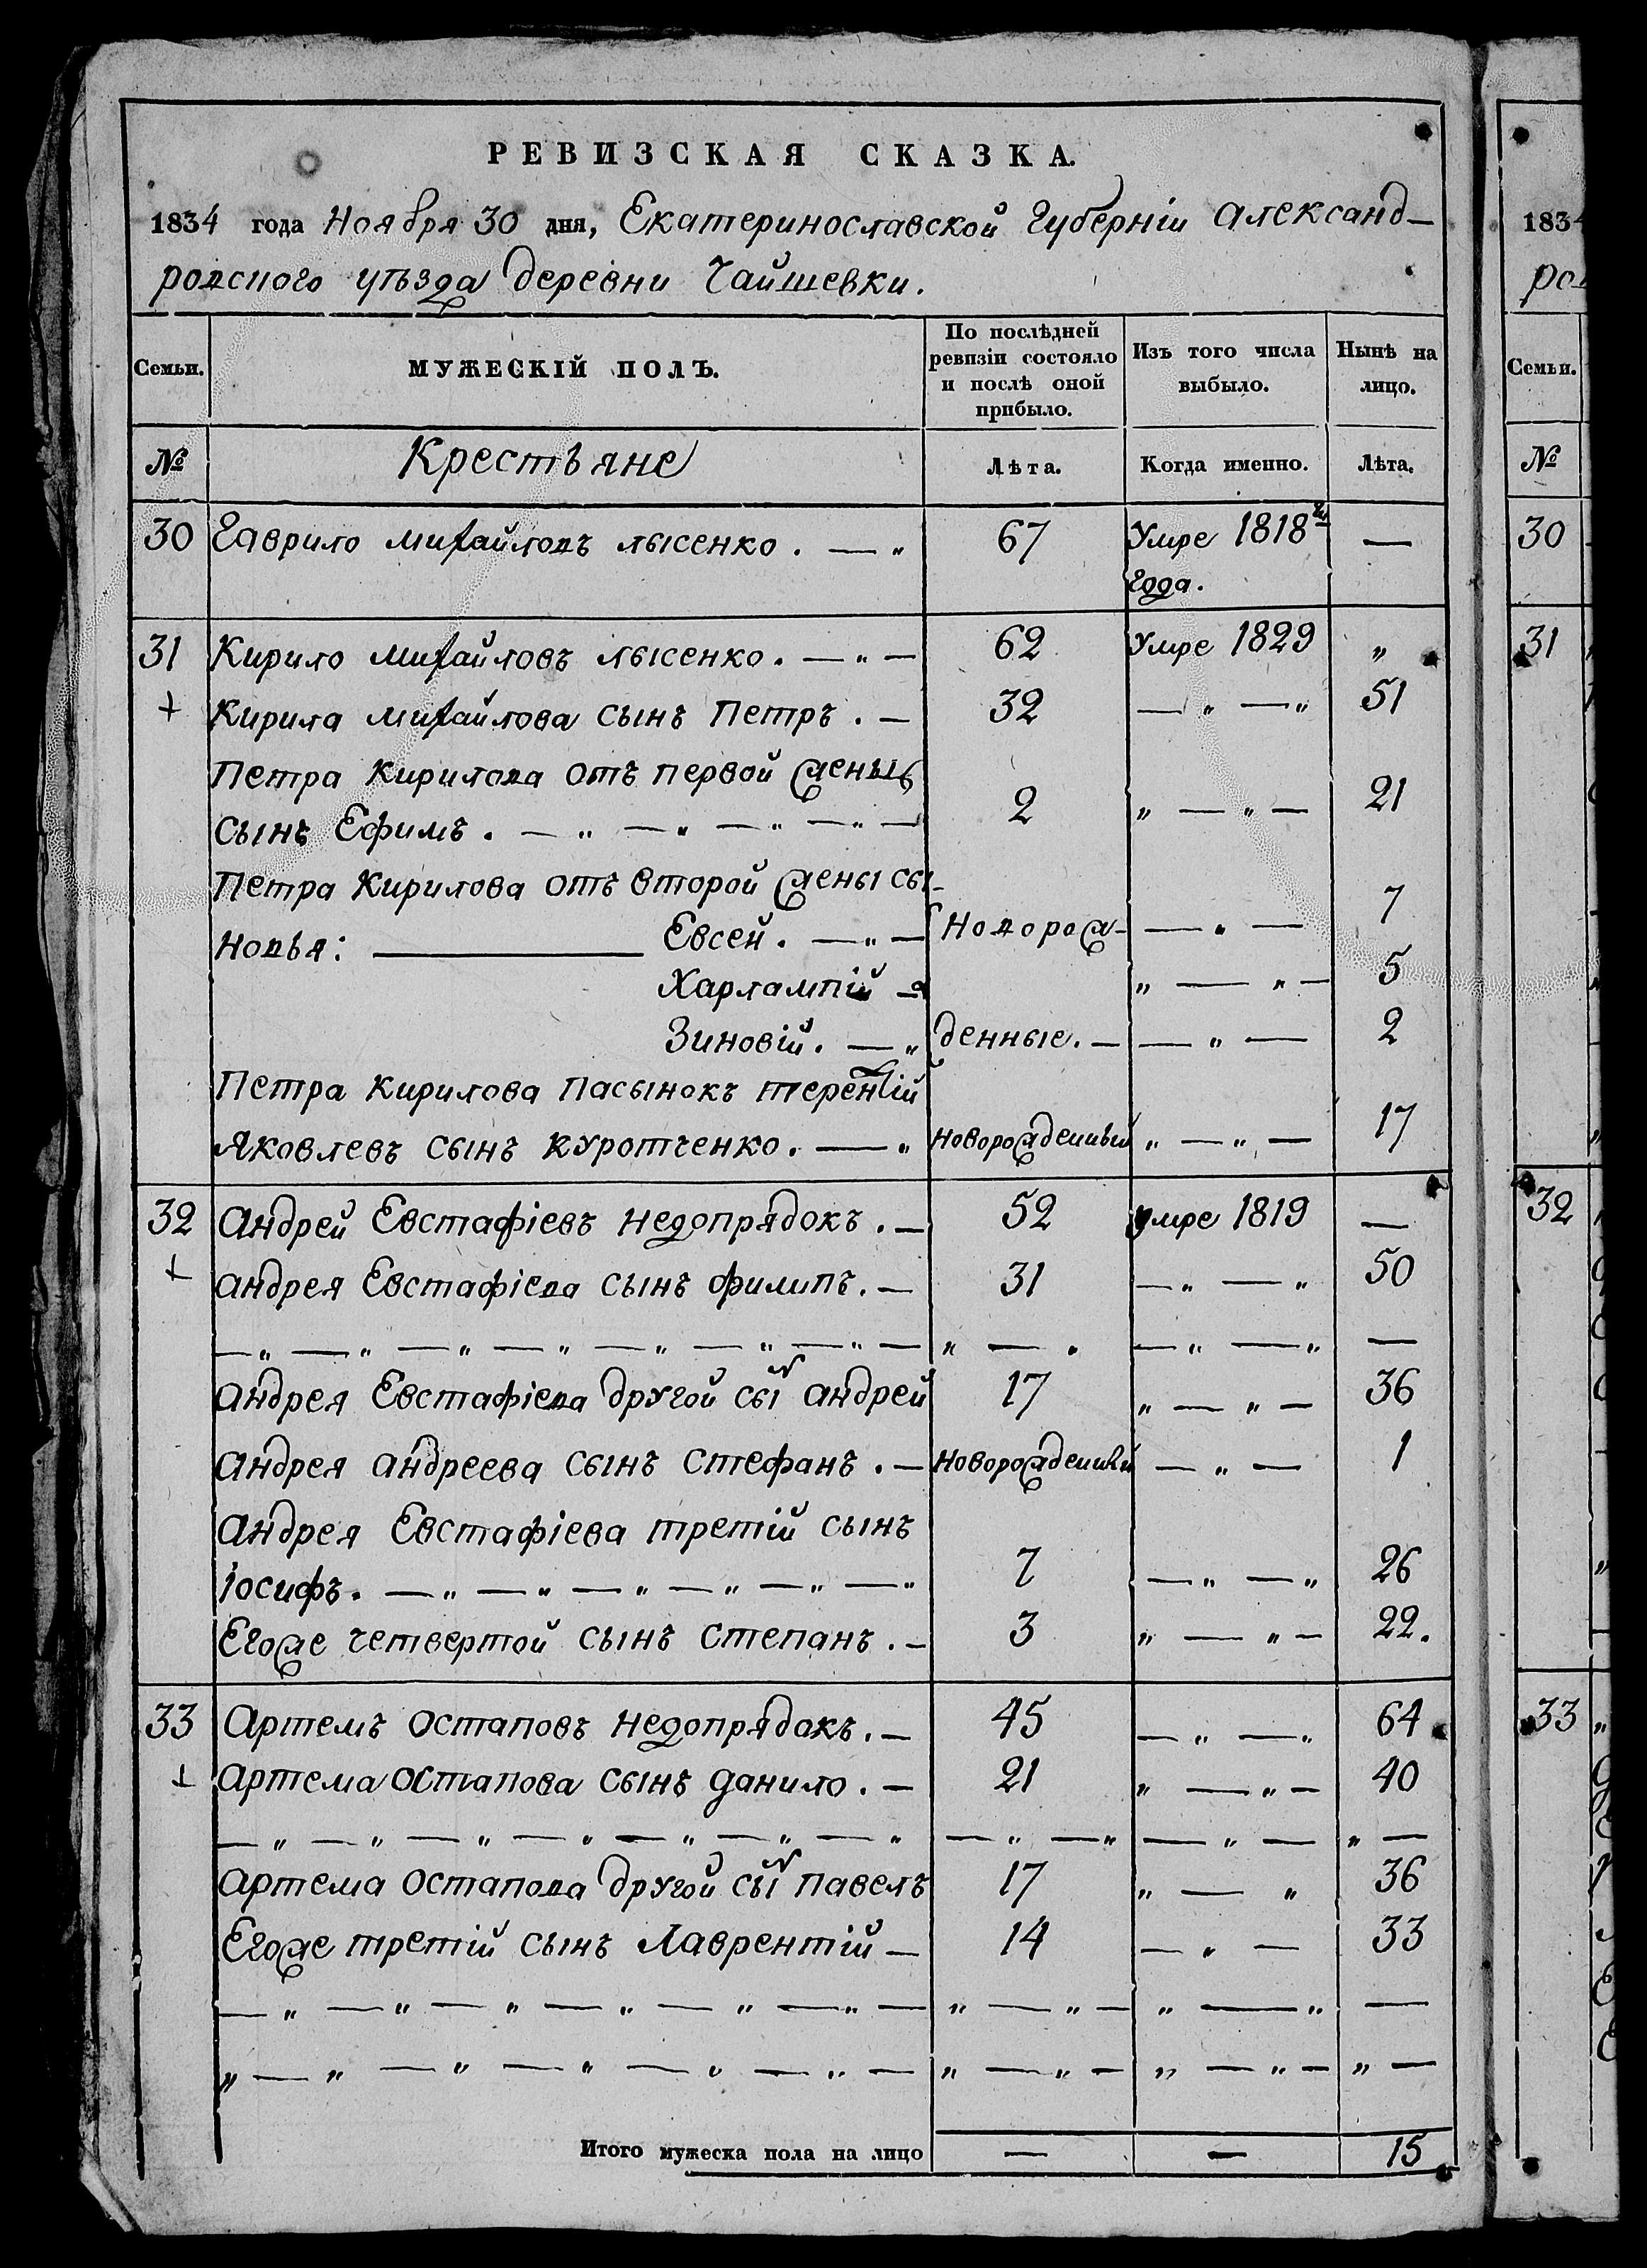 РЕВИЗСКАЯ СКАЗКА.
1834 года Ноября 30 дня, Екатеринославской Губерніи Александ-
ровского уѣзда деревни Чайшевки.
Семьи. МУЖЕСКІЙ ПОЛЪ. По послѣдней ревизіи состояло и послѣ оной прибыло. Изъ того числа выбыло. Нынѣ на лицо.
№ Крестьяне Лѣта. Когда именно. Лѣта.
30 Гаврило Михайловъ Лысенко. — „ 67 Умре 1818го —
года.
31 Кирило Михайловъ Лысенко. — „ — 62 Умре 1829 „
+ Кирила Михайлова сынъ Петръ. — 32 — „ — „ 51
Петра Кирилова отъ первой жены
сынъ Ефимъ. — „ — „ — „ — „ — 2 „ — „ — 21
Петра Кирилова отъ второй жены сы-
новья: — Евсей. — „ — Новорож- — „ — 7
Харлампій — „ — „ — 5
Зиновій. — „ денные. — — „ — 2
Петра Кирилова пасынокъ Терентій
Яковлевъ сынъ Куротченко. — „ новорожденный „ — „ — 17
32 Андрей Евстафіевъ Недопрядокъ. — 52 умре 1819 —
+ Андрея Евстафіева сынъ Филипъ. — 31 — „ — „ 50
— „ — „ — „ — „ — „ — „ — „ — „ — „ — „ — „ —
Андрея Евстафіева другой сын Андрей 17 „ — „ — 36
Андрея Андреева сынъ Стефанъ. — новорожденный — „ — 1
Андрея Евстафіева третій сынъ
Іосифъ. — „ — „ — „ — „ — „ — „ 7 — „ — „ 26
Егоже четвертой сынъ Степанъ. — 3 „ — „ — 22.
33 Артемъ Остаповъ Недопрядокъ. — 45 — „ — „ 64
+ Артема Остапова сынъ Данило. — 21 „ — „ — 40
— „ — „ — „ — „ — „ — „ — „ — „ — „ — „ — „ —
Артема Остапова другой сын Павелъ 17 „ — „ 36
Егоже третій сынъ Лаврентій — 14 — „ — 33
— „ — „ — „ — „ — „ — „ — „ — „ — „ — „ —
„ — „ — „ — „ — „ — „ — „ — „ — „ — „ — „ —
Итого мужеска пола на лицо — — 15
1834
Семьи.
№
30
31
32
33